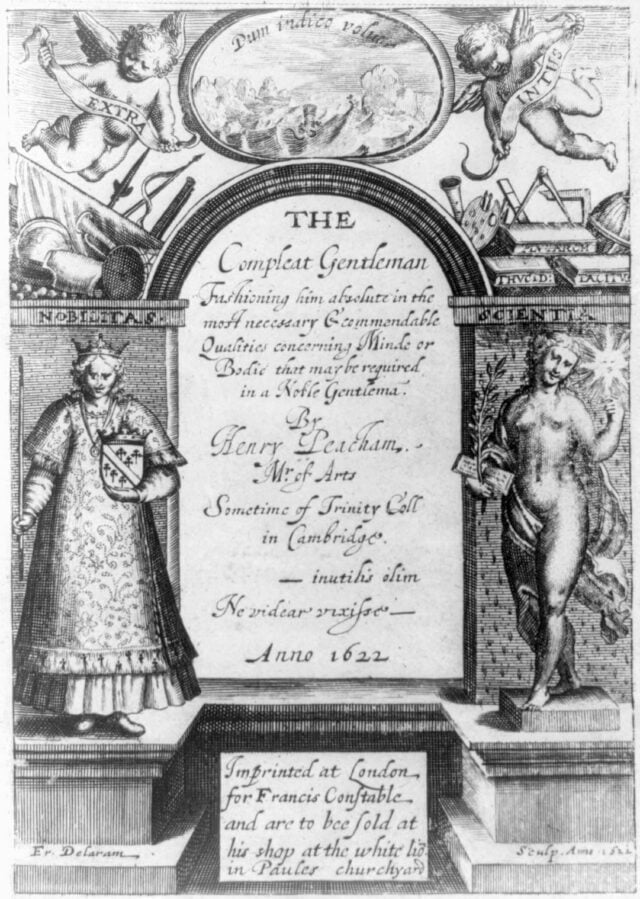 Dum indico volucr
EXTRA
INTUS
THE
Compleat Gentleman
Fashioning him absolute in the
most necessary & commendable
Qualities concerning Minde or
Bodie that may be required
in a Noble Gentlemā.
By
Henry Peacham.
Mr. of Arts
Sometime of Trinity Coll
in Cambridge.
— inutilis olim
Ne videar vixisse —
Anno 1622
NOBILITAS.
PLVTARCH
THVCID:
TACITVS
SCIENTIA
Imprinted at London
for Francis Constable
and are to bee sold at
his shop at the white liō
in Paules churchyard
Fr. Delaram
Sculp. Anno 1622